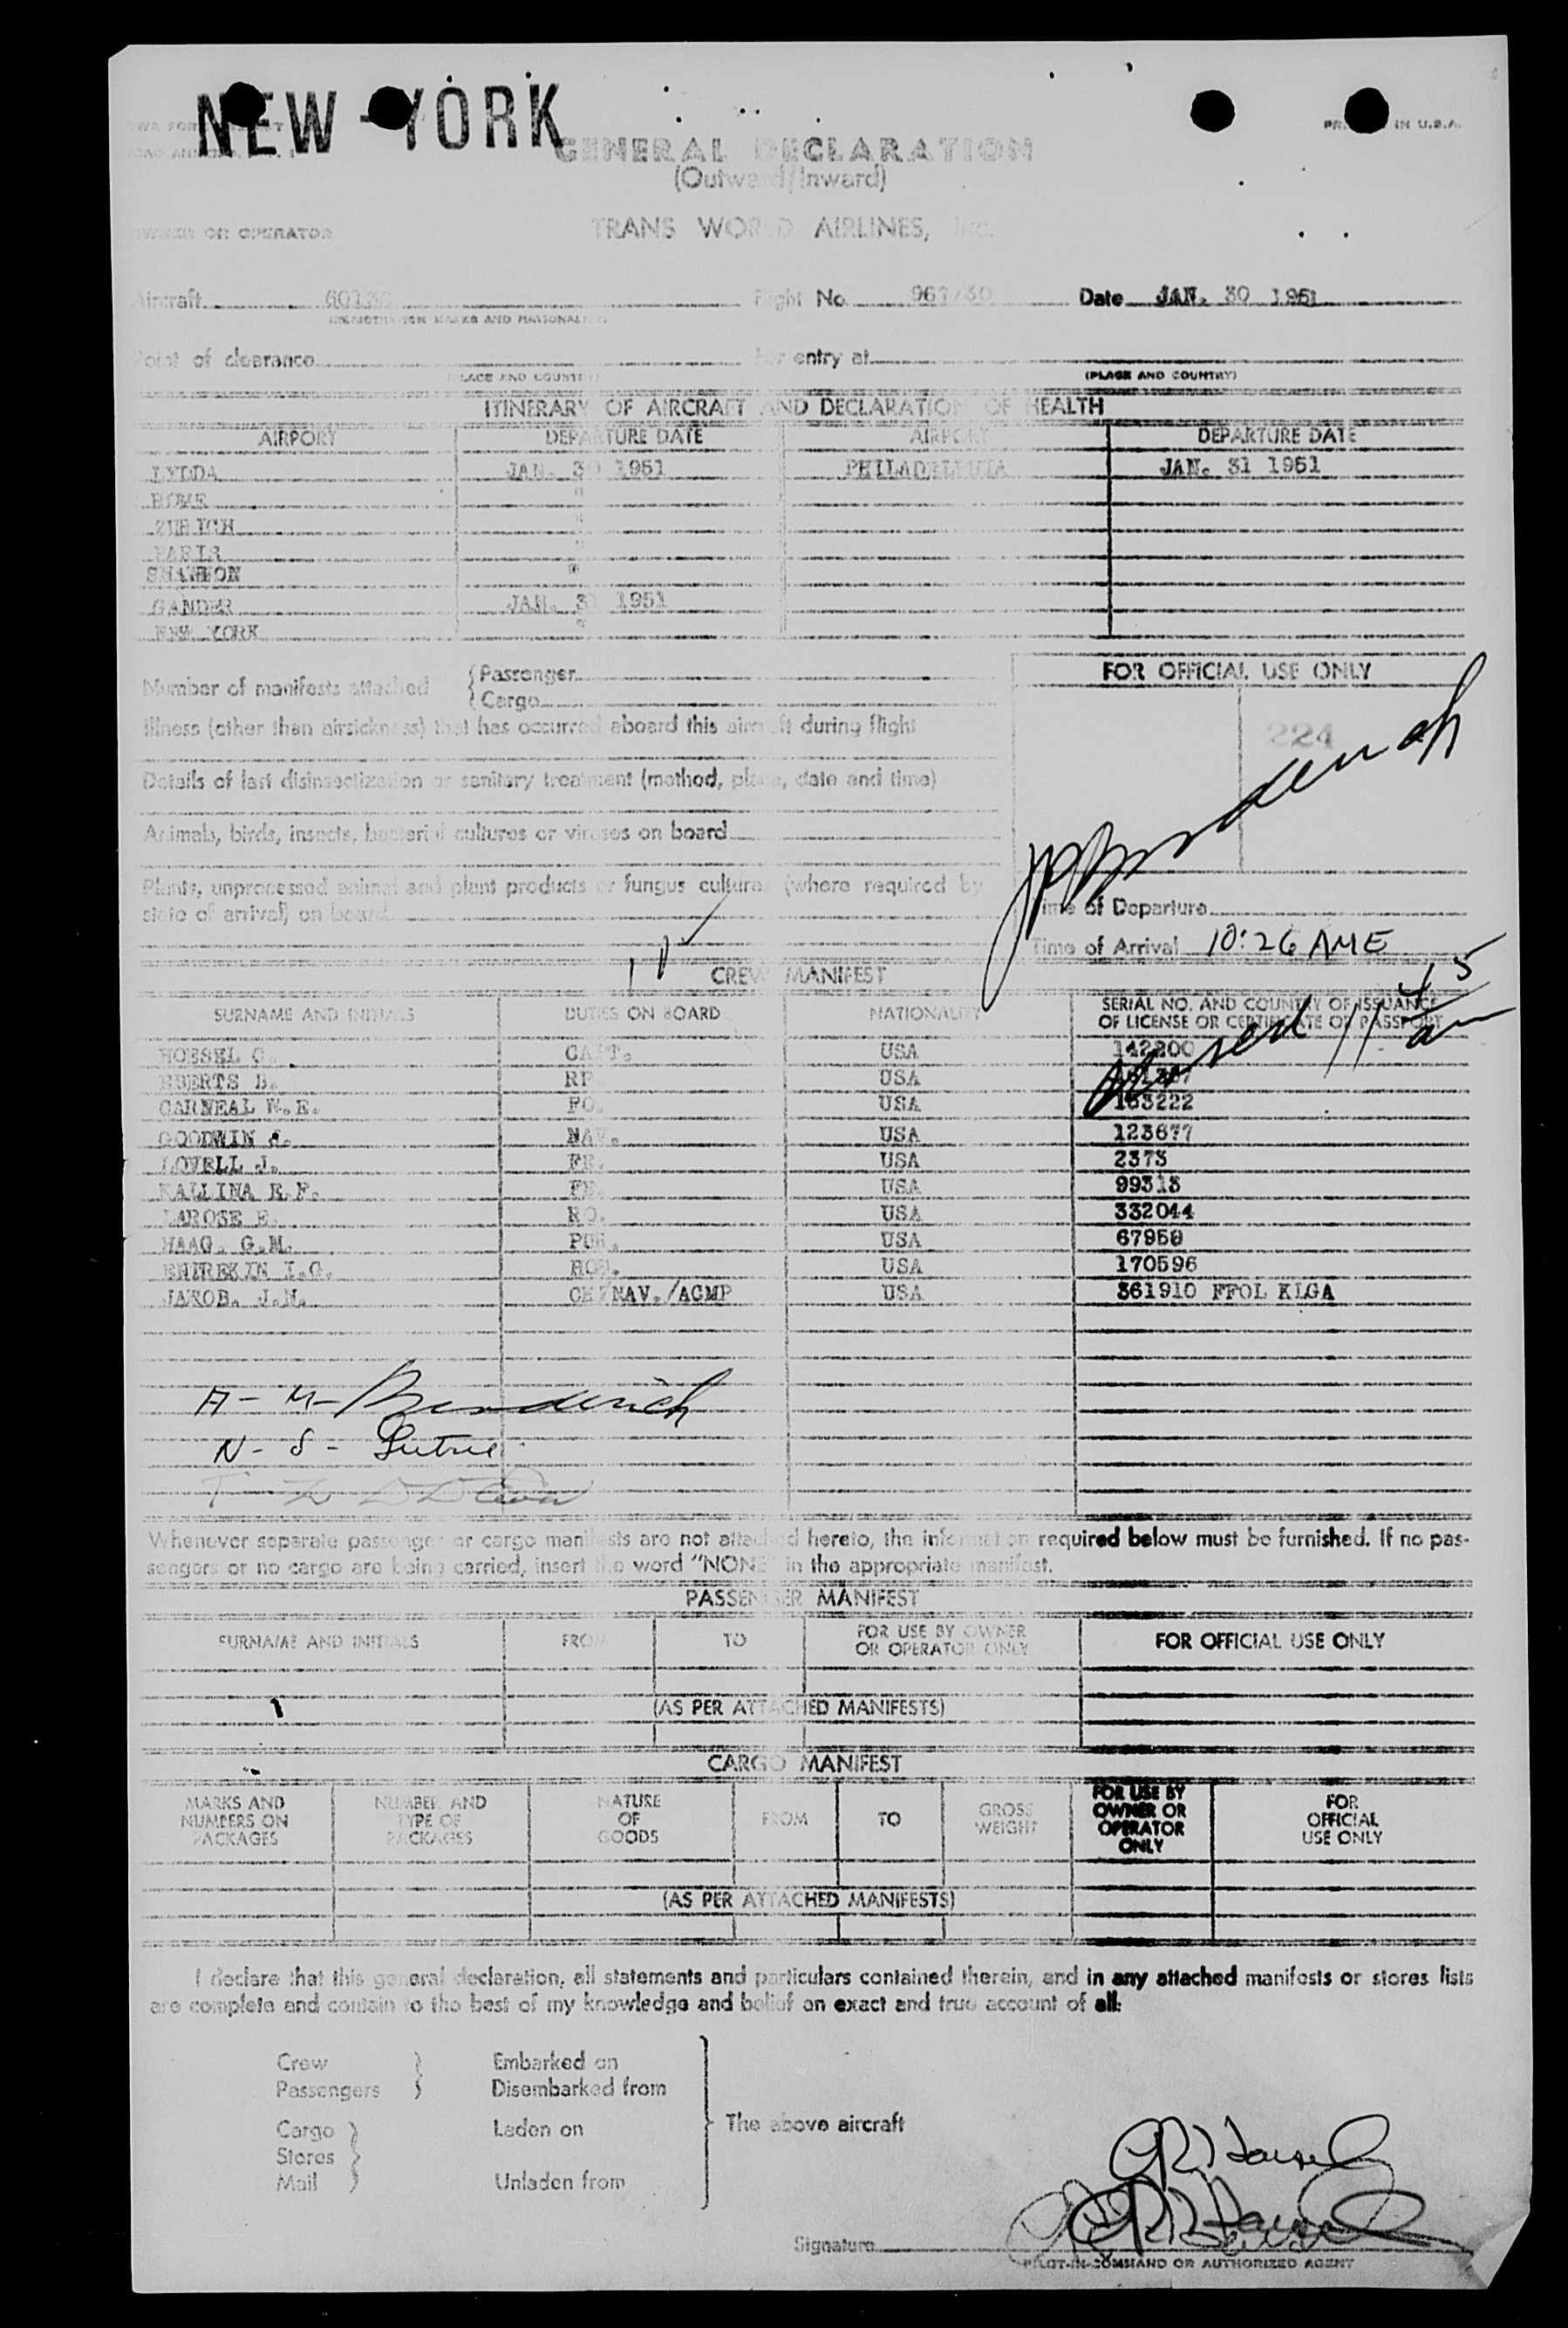 NEW-YORK
PR IN U.S.A.
GENERAL DECLARATION
(Outward/Inward)
OWNER OR OPERATOR TRANS WORLD AIRLINES, Inc.
Aircraft Flight No. Date JAN. 30 1951
(REGISTRATION MARKS AND NATIONALITY)
Point of clearance For entry at
(PLACE AND COUNTRY) (PLACE AND COUNTRY)
ITINERARY OF AIRCRAFT AND DECLARATION OF HEALTH
AIRPORT DEPARTURE DATE AIRPORT DEPARTURE DATE
LYDDA JAN. 30 1951 PHILADELPHIA JAN. 31 1951
ROME "
ZURICH "
PARIS "
SHANNON "
GANDER JAN. 31 1951
NEW YORK "
Number of manifests attached {Passenger
{Cargo
FOR OFFICIAL USE ONLY
224
Illness (other than airsickness) that has occurred aboard this aircraft during flight
Details of last disinsectization or sanitary treatment (method, place, date and time)
Animals, birds, insects, bacterial cultures or viruses on board
Plants, unprocessed animal and plant products or fungus cultures (where required by
state of arrival) on board
Time of Departure
Time of Arrival 10:26 AME
CREW MANIFEST
SURNAME AND INITIALS DUTIES ON BOARD NATIONALITY SERIAL NO. AND COUNTRY OF ISSUANCE
OF LICENSE OR CERTIFICATE OR PASSPORT
HOESSEL C. CAPT. USA 142200
B. RP USA
CARNEAL W.E. FO. USA 163222
GOODWIN J. NAV. USA 123677
LOVELL J. FE. USA 2373
KALLINA E.F. FE. USA 99313
LAROSE E. RO. USA 332044
HAAG. G.M. PUR. USA 67950
ENTREKIN I.G. HOS. USA 170596
JAKOB. J.N. CK/NAV./ACMP USA 361910 FFOL KLGA
A - M -
N - S -
Whenever separate passenger or cargo manifests are not attached hereto, the information required below must be furnished. If no pas-
sengers or no cargo are being carried, insert the word "NONE" in the appropriate manifest.
PASSENGER MANIFEST
SURNAME AND INITIALS FROM TO FOR USE BY OWNER
OR OPERATOR ONLY FOR OFFICIAL USE ONLY
(AS PER ATTACHED MANIFESTS)
CARGO MANIFEST
MARKS AND
NUMBERS ON
PACKAGES NUMBER AND
TYPE OF
PACKAGES NATURE
OF
GOODS FROM TO GROSS
WEIGHT FOR USE BY
OWNER OR
OPERATOR
ONLY FOR
OFFICIAL
USE ONLY
(AS PER ATTACHED MANIFESTS)
I declare that this general declaration, all statements and particulars contained therein, and in any attached manifests or stores lists
are complete and contain to the best of my knowledge and belief an exact and true account of all:
Crew } Embarked on
Passengers } Disembarked from
Cargo } Laden on
Stores }
Mail } Unladen from
} The above aircraft
Signature
PILOT-IN-COMMAND OR AUTHORIZED AGENT